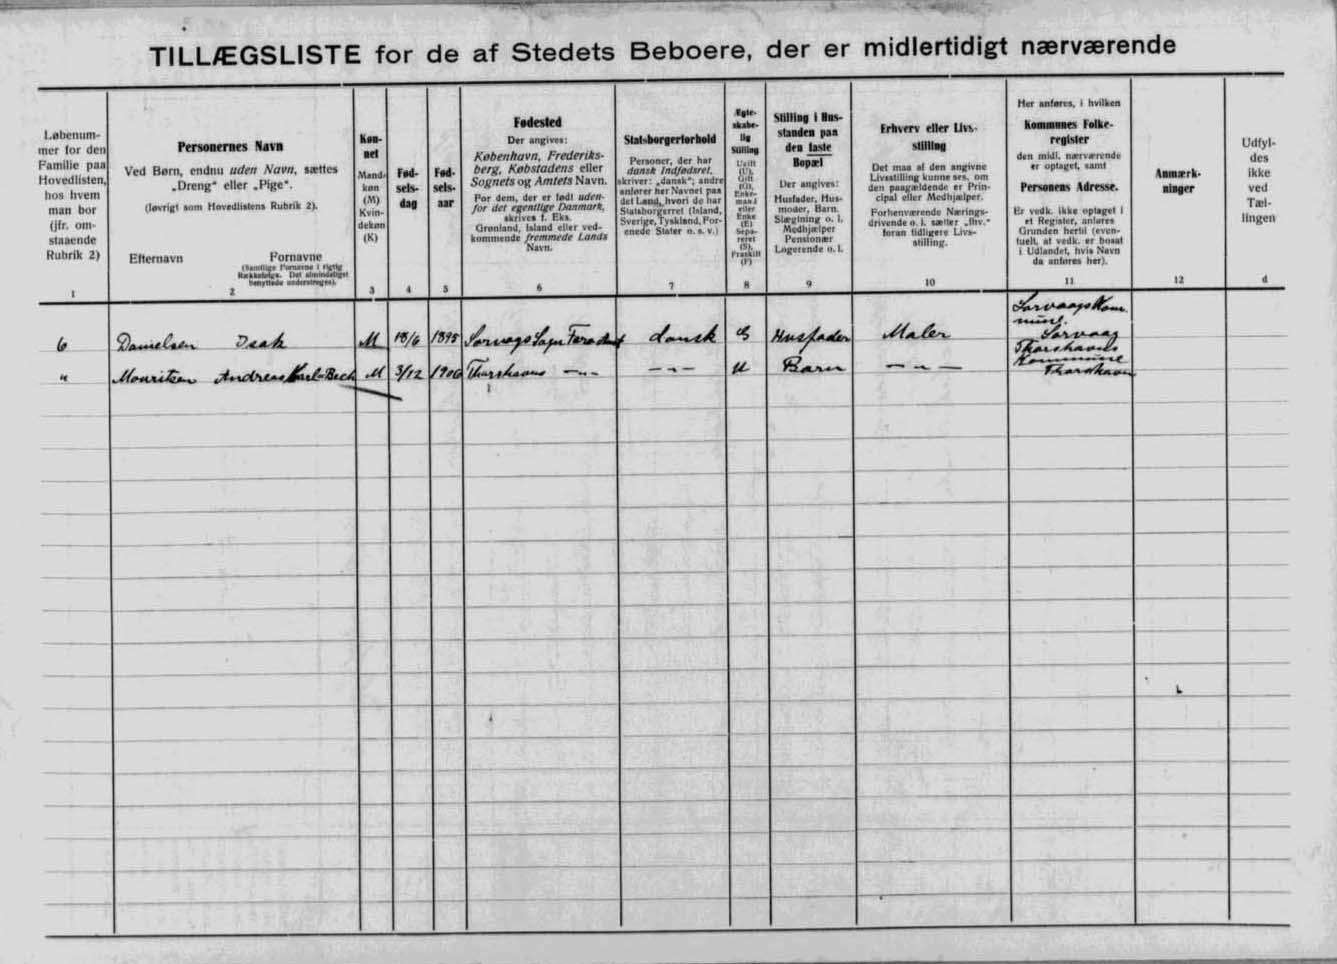 TILLÆGSLISTE for de af Stedets Beboere, der er midlertidigt nærværende
Løbenum-
mer for den
Familie paa
Hovedlisten,
hos hvem
man bor
(jfr. om-
staaende
Rubrik 2)
1
Personernes Navn
Ved Børn, endnu uden Navn, sættes
„Dreng“ eller „Pige“.
(Iøvrigt som Hovedlistens Rubrik 2).
Efternavn
Fornavne
(Samtlige Fornavne i rigtig
Rækkefølge. Det almindeligst
benyttede understreges).
2
Køn-
net
Mand-
køn
(M)
Kvin-
dekøn
(K)
3
Fød-
sels-
dag
4
Fød-
sels-
aar
5
Fødested
Der angives:
København, Frederiks-
berg, Købstadens eller
Sognets og Amtets Navn.
For dem, der er født uden-
for det egentlige Danmark,
skrives f. Eks.
Grønland, Island eller ved-
kommende fremmede Lands
Navn.
6
Statsborgerforhold
Personer, der har
dansk Indfødsret,
skriver: „dansk“; andre
anfører her Navnet paa
det Land, hvori de har
Statsborgerret (Island,
Sverige, Tyskland, For-
enede Stater o. s. v.)
7
Ægte-
skabe-
lig
Stilling
Ugift
(U),
Gift
(G),
Enke-
mand
eller
Enke
(E)
Sepa-
reret
(S),
Fraskilt
(F)
8
Stilling i Hus-
standen paa
den faste
Bopæl
Der angives:
Husfader, Hus-
moder, Barn.
Slægtning o. l.
Medhjælper
Pensionær
Logerende o. l.
9
Erhverv eller Livs-
stilling
Det maa af den angivne
Livsstilling kunne ses, om
den paagældende er Prin-
cipal eller Medhjælper.
Forhenværende Nærings-
drivende o. l. sætter „fhv.“
foran tidligere Livs-
stilling.
10
Her anføres, i hvilken
Kommunes Folke-
register
den midl. nærværende
er optaget, samt
Personens Adresse.
Er vedk. ikke optaget i
et Register, anføres
Grunden hertil (even-
tuelt, at vedk. er bosat
i Udlandet, hvis Navn
da anføres her).
11
Anmærk-
ninger
12
Udfyl-
des
ikke
ved
Tæl-
lingen
d
6 Danielsen Isak M 18/6 1895 Sorvags Sogn dansk G Husfader Maler Sorvaags Kom
mune. Sorvaag
" Mouritzen Andreas Karl Bech M 3/12 1906 Thorshavns — " — — " — U Barn — " — Thorshavns
Kommune
Thorshavn